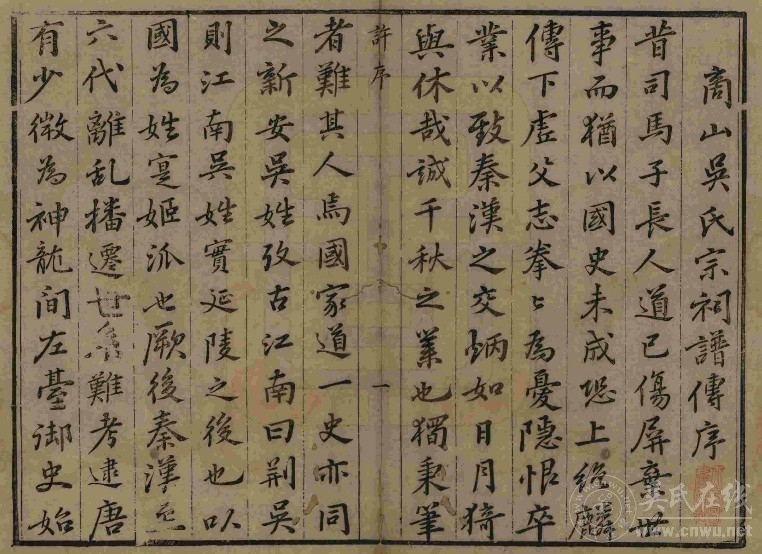 商山吳氏宗祠譜傳序
昔司馬子長人道已傷屏棄世
事而猶以國史未成恐上絕麟
傳下虛父志拳々為憂隱恨卒
業以致秦漢之交炳如日月猗
與休哉誠千秋之業也獨秉筆
許序
一
者難其人焉國家道一史亦同
之新安吳姓攷古江南曰荆吳
則江南吳姓實延陵之後也以
國為姓寔姬派也厥後秦漢
六代離乱播遷世系難考逮唐
有少微為神龍間左臺御史始
吳氏在线
www.cnwu.net